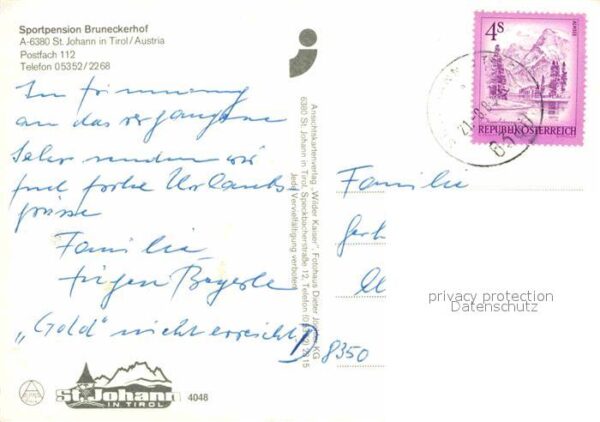 Sportpension Bruneckerhof
A-6380 St. Johann in Tirol/Austria
Postfach 112
Telefon 05352/2268
In Erinnerung
an das vergangene
Jahr senden wir
frohe Urlaubs
grüsse
Familie
Jürgen Beyerle
„Gold" nicht erreicht
Ansichtskartenverlag "Wilder Kaiser", Fotohaus Dieter KG
6380 St. Johann in Tirol, Speckbacherstraße 12, Telefon
Jede Vervielfältigung verboten
4 S
REPUBLIK ÖSTERREICH
Familie
Ger
privacy protection
Datenschutz
8350
St. Johann
IN TIROL
4048